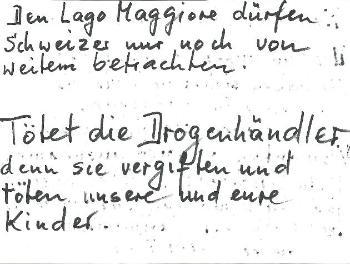 Den Lago Maggiore dürfen
Schweizer nur noch von
weitem betrachten.
Tötet die Drogenhändler
denn sie vergiften und
töten unsere und eure
Kinder.